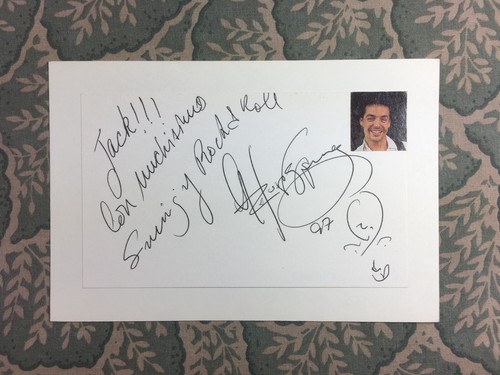 Jack!!!
Con muchisimo
Swing y Rock & Roll
97